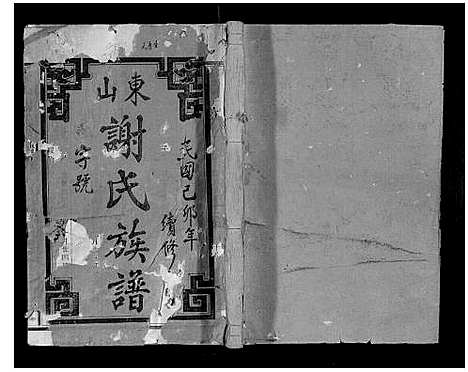 東山
謝氏族譜
民國己卯年
續修
字號